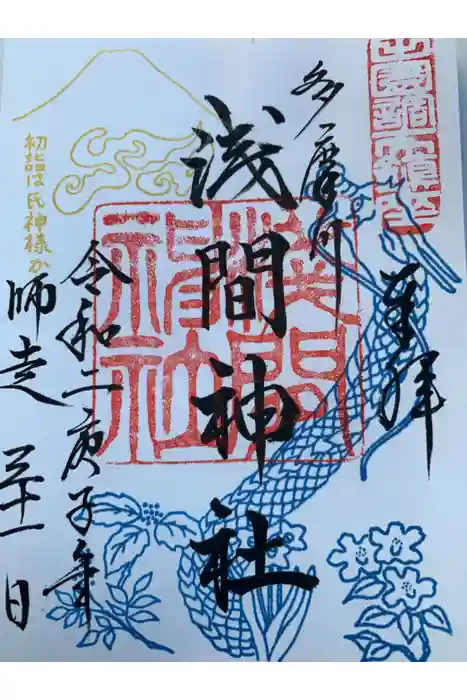 奉拝
多摩川
浅間神社
浅間神社
令和二庚子年
師走 三十一日
初詣は氏神様か